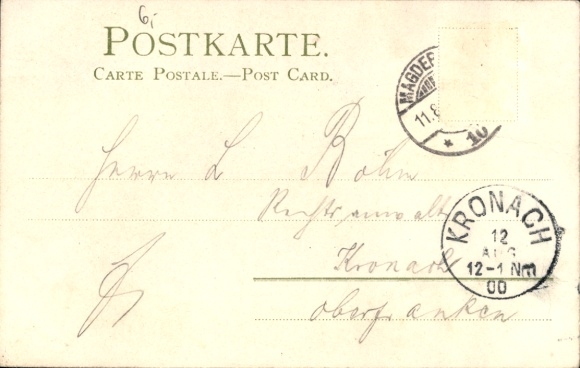 6,-
POSTKARTE.
CARTE POSTALE.—POST CARD.
MAGDEB
11.8
* 10
Herrn L Böhm
Rechtsanwalt
Kronach
Oberfranken
KRONACH
12
AUG
12-1 N
00